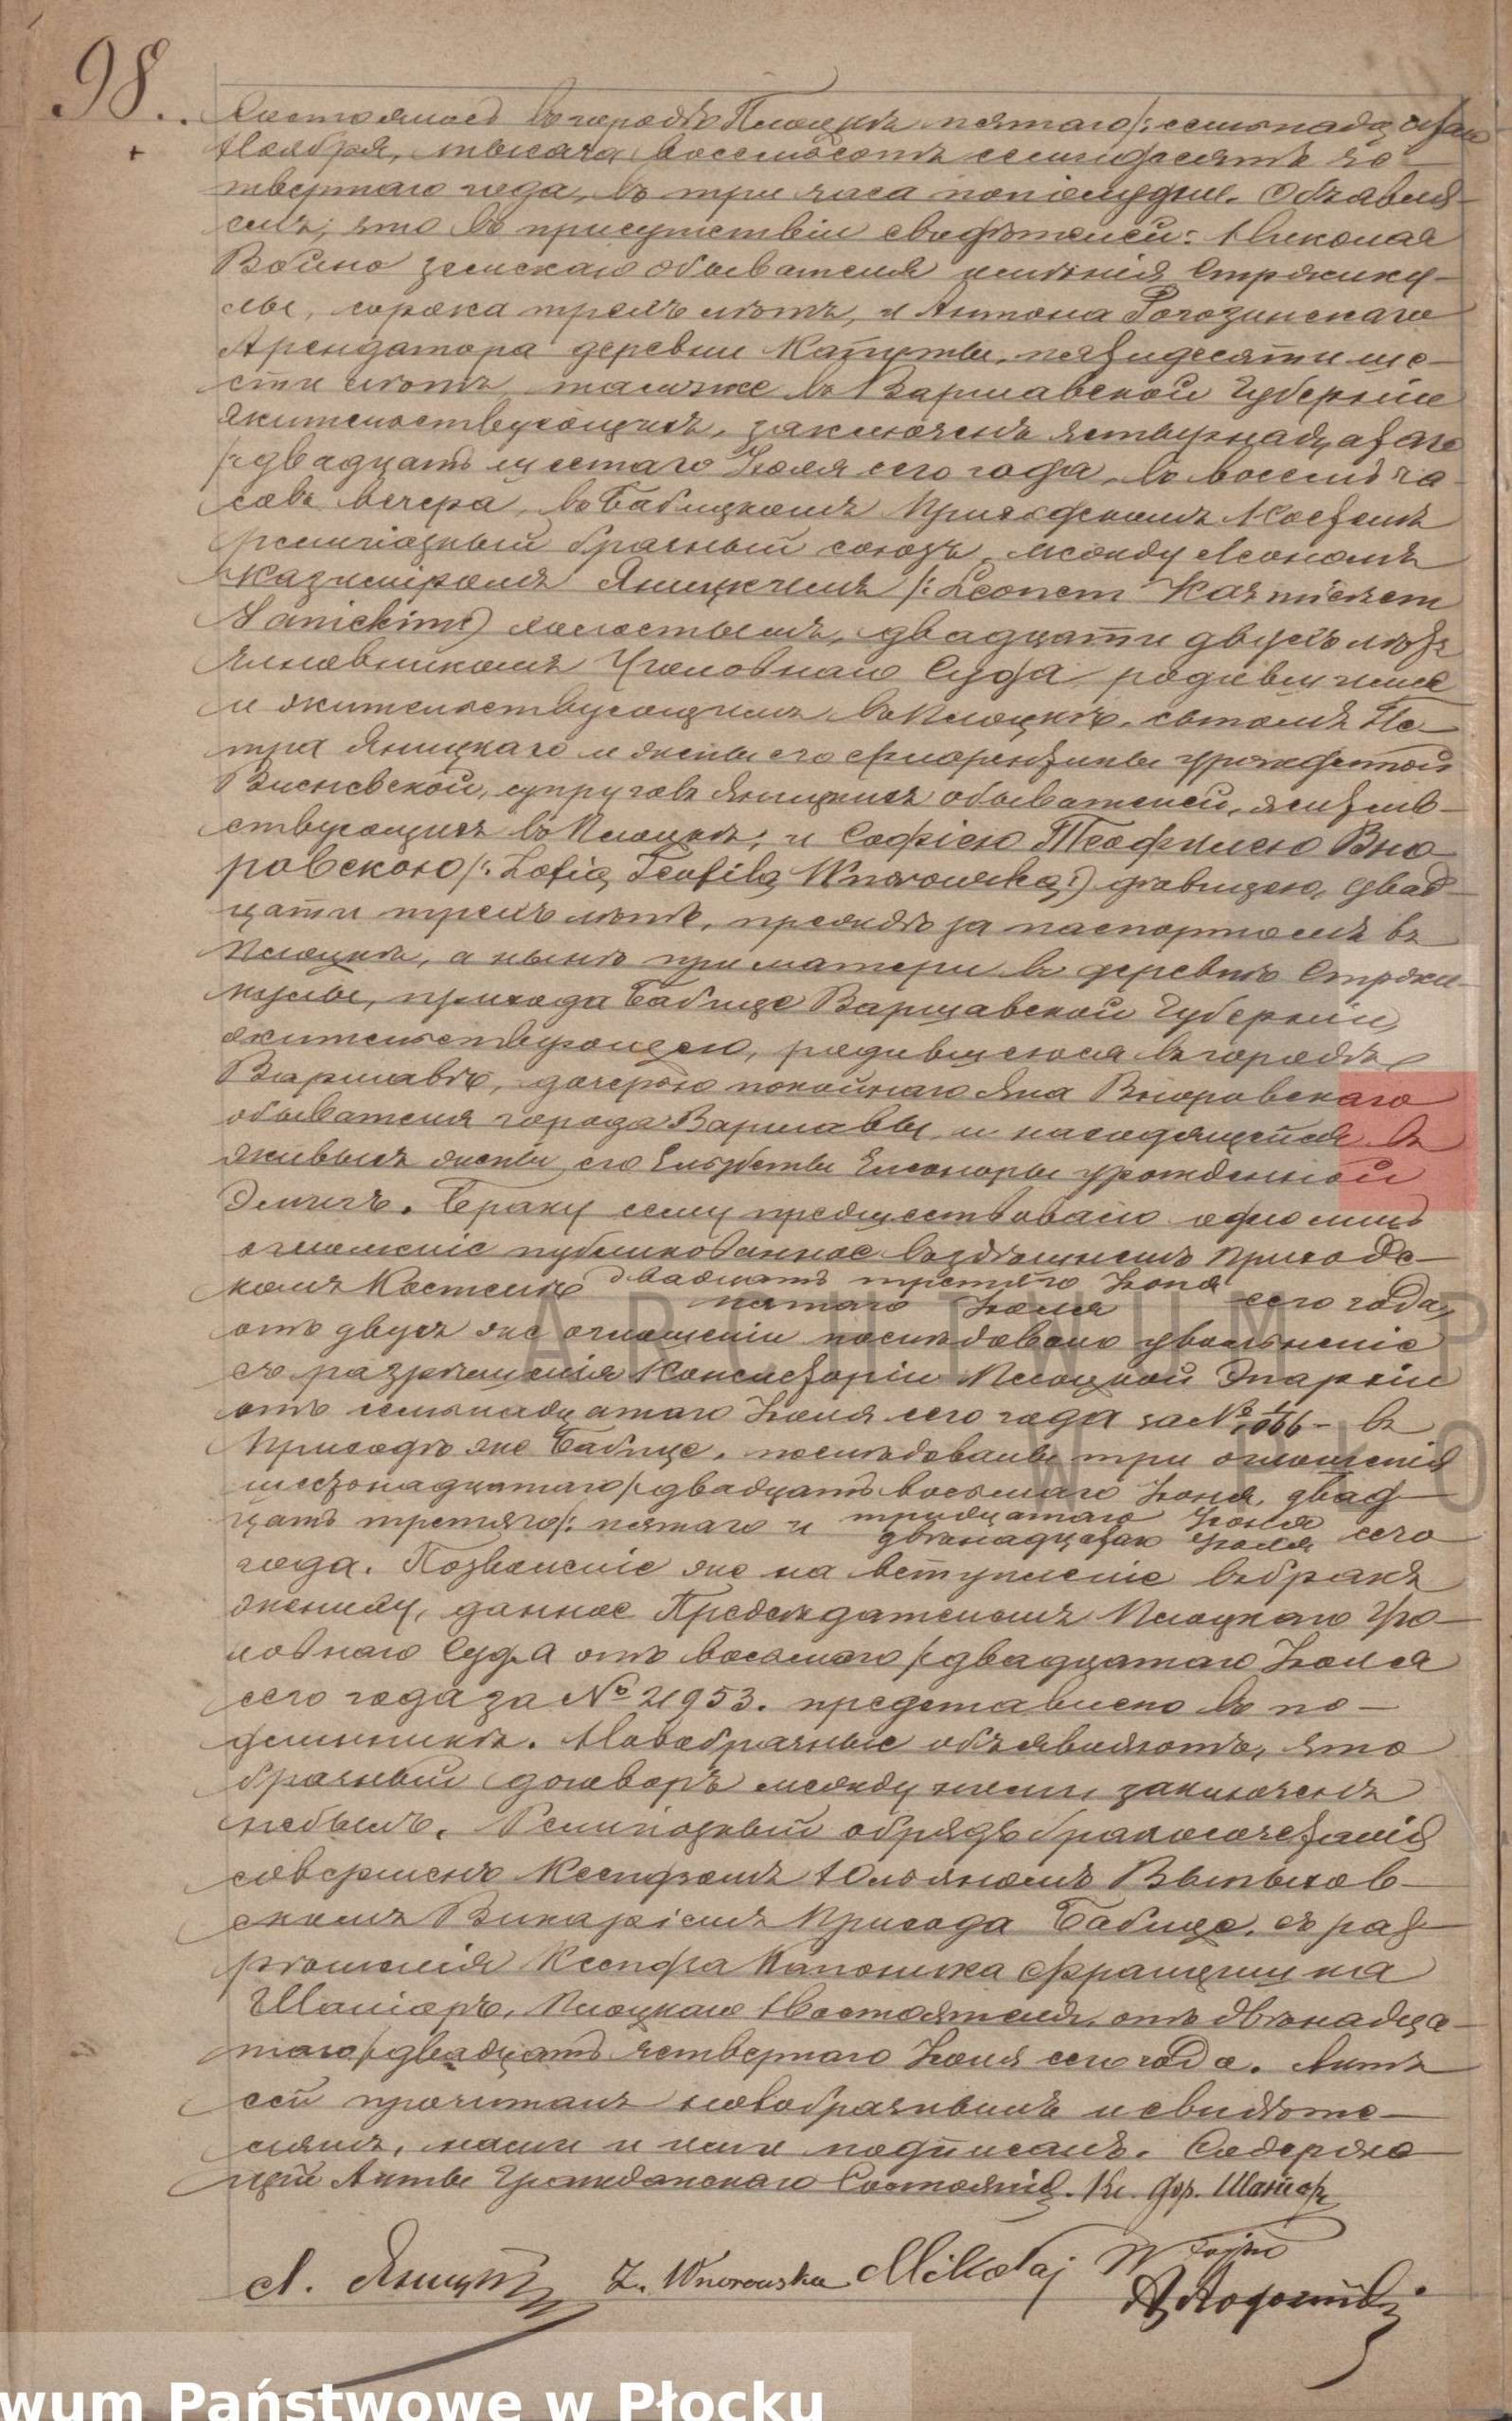 98.
Состоялось въ городѣ Плоцкѣ пятаго /: семьнадцатаго
Ноября, тысяча восемьсотъ семидесятъ че-
твертаго года, въ три часа пополудни. Объявля-
емъ, что въ присутствіи свидѣтелей: Николая
Войно земскаго обывателя имѣнія Стржику-
лы, сорока трехъ лѣтъ, и Антона Рогозинскаго
Арендатора деревни Капуты, пятидесяти ше-
сти лѣтъ, также въ Варшавской Губерніи
жительствующихъ, заключенъ четырнадцатаго
/: двадцать шестаго Іюля сего года, въ восемь ча-
совъ вечера, въ Бабицкомъ Приходскомъ Костелѣ
религіозный брачный союзъ, между Леономъ
Казиміромъ Яницкимъ /: Leonem Kazmierzem
Janickim:) холостымъ, двадцати двухъ лѣтъ
Чиновникомъ Уголовнаго Суда родившимся
и жительствующимъ въ Плоцкѣ, сыномъ Пе-
тра Яницкаго и жены его Флорентины урожденной
Висневской, супруговъ Яницкихъ обывателей, житель-
ствующихъ въ Плоцкѣ; и Софіею Теофилею Вно-
ровскою /: Zofią Teofilą Wnorowską:) дѣвицею, двад-
цати трехъ лѣтъ, прежде за паспортомъ въ
Плоцкѣ, а нынѣ при матери въ деревнѣ Стржи-
кулы, прихода Бабице Варшавской Губерніи,
жительствующею, родившеюся въ городѣ
Варшавѣ, дочерью покойнаго Яна Вноровскаго
обывателя города Варшавы, и находящейся въ
живыхъ жены его Елизбеты Елеоноры урожденной
Эмичъ. Браку сему предшествовало одно лишь
оглашеніе публикованное въ здѣшнемъ Приходс-
комъ Костелѣ двадцать третьяго Іюня
пятаго Іюля сего года,
отъ двухъ же оглашеній послѣдовало увольненіе
съ разрѣшенія Консисторіи Плоцкой Эпархіи
отъ семьнадцатаго Іюля сего года за № 1066 - въ
Приходѣ же Бабице, послѣдовали три оглашенія
шестонадцатаго /: двадцать восьмаго Іюня, двад-
цать третяго /: пятаго и тридцатаго Іюня
двѣнадцатаго Іюля сего
года. Позволеніе же на вступленіе въ бракъ
жениху, данное Предсѣдателемъ Плоцкаго Уго-
ловнаго Суда отъ восьмаго /: двадцатаго Іюля
сего года за № 21953. представлено въ по-
длинникѣ. Новобрачные объявляютъ, что
брачный договоръ между ними заключенъ
небылъ. Религіозный обрядъ бракосочетанія
совершенъ Ксендзомъ Юльяномъ Выпыхов-
скимъ Викаріемъ Прихода Бабице, съ раз-
рѣшенія Ксендза Каноника Францишка
Шаніоръ, Плоцкаго Настоятеля, отъ двѣнадца-
таго /: двадцать четвертаго Іюля сего года. Актъ
сей прочитанъ новобрачнымъ и свидѣте-
лямъ, нами и ими подписанъ. Содержа-
щій Акты Гражданскаго Состоянія. Кс. Фр. Шаніоръ
Л. Яницкій Z. Wnorowska Mikołaj Wojno
ARCHIWUM P
W PŁO
wum Państwowe w Płocku